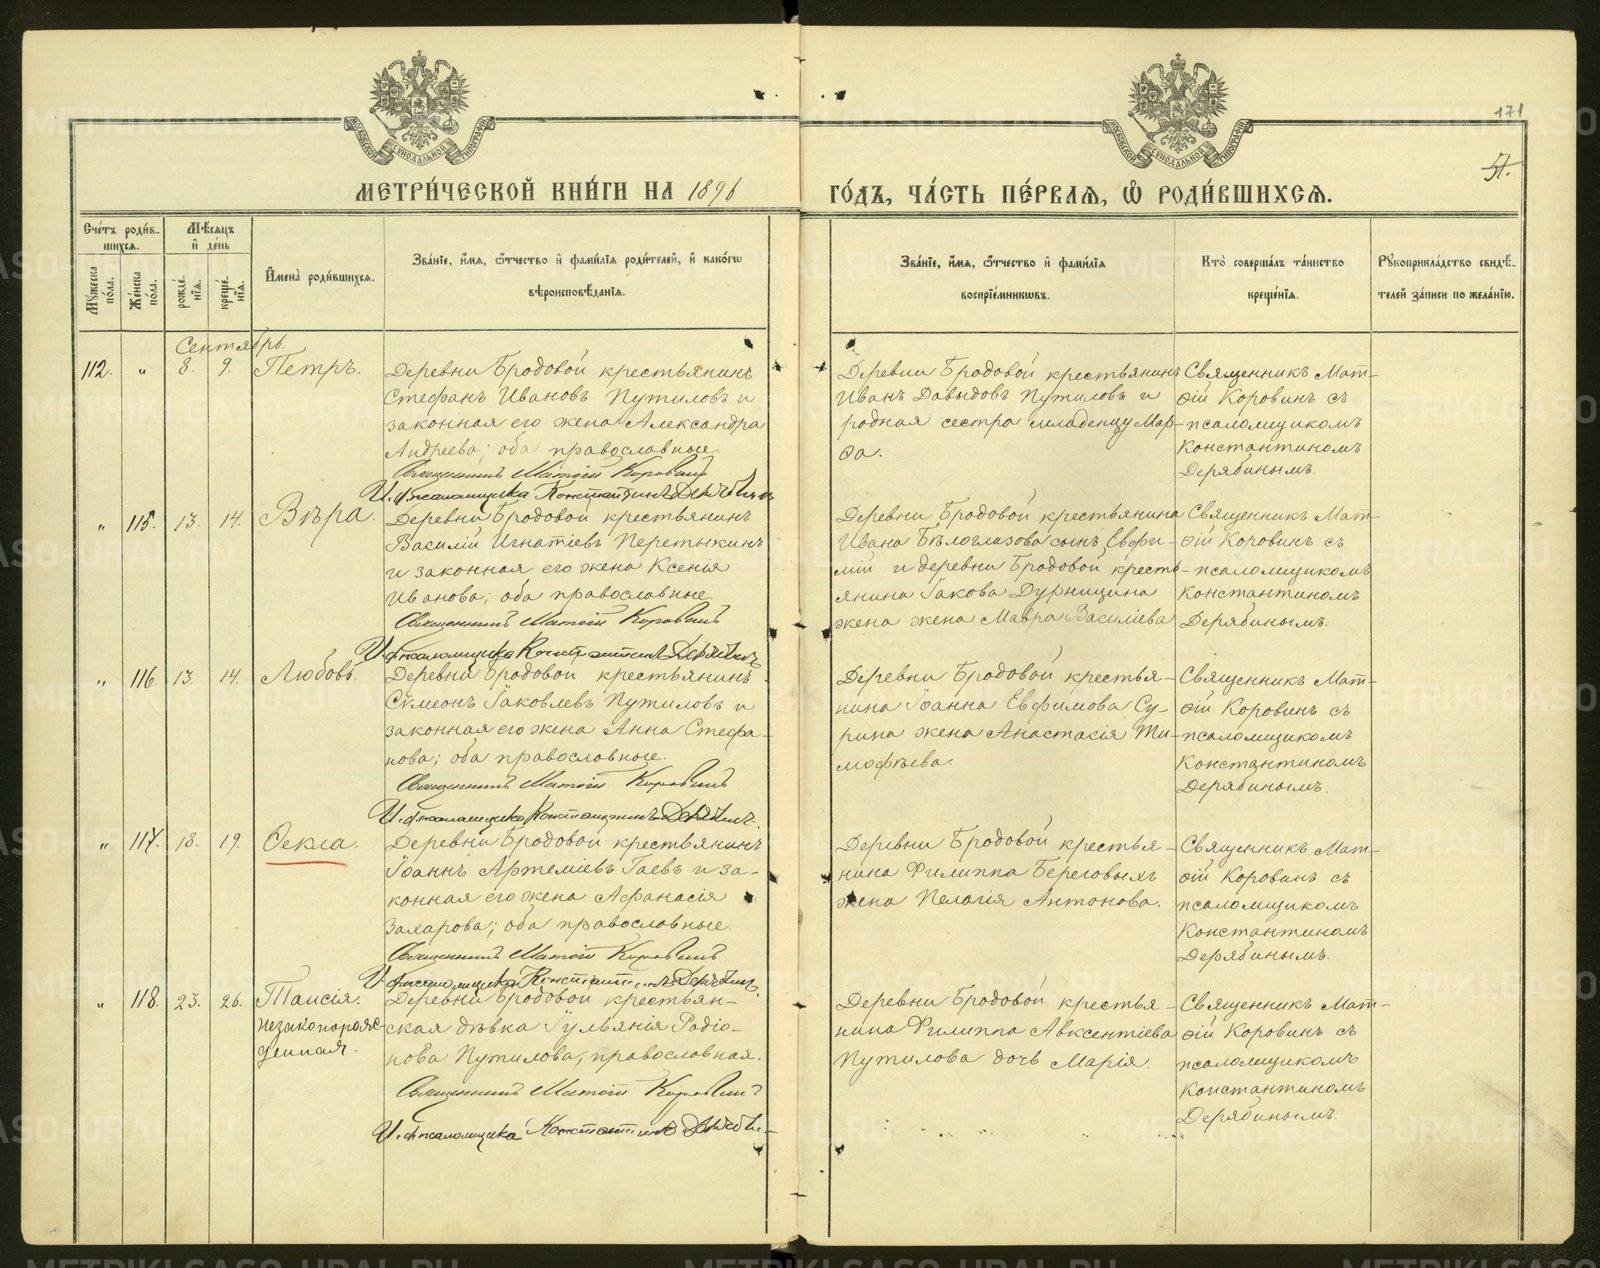 171
51.
МОСКОВСКОЙ СѴНОДАЛЬНОЙ ТИПОГРАФІИ
МОСКОВСКОЙ СѴНОДАЛЬНОЙ ТИПОГРАФІИ
МЕТРИ́ЧЕСКОЙ КНИ́ГИ НА 1896
ГО́ДЪ, ЧА́СТЬ ПЕ́РВАѦ, Ѡ҆ РОДИ́ВШИХСѦ.
Сче́тъ роди́в-
шихсѧ.
Мꙋ́жеска по́ла.
Же́нска по́ла.
Мѣ́сѧцъ
и҆ де́нь
рожде́-
нїѧ.
креще́-
нїѧ.
И҆мена̀ роди́вшихсѧ.
Зва́нїе, и҆́мѧ, ѻ҆́тчество и҆ фами́лїѧ роди́телей, и҆ како́гѡ
вѣроисповѣ́данїѧ.
Зва́нїе, и҆́мѧ, ѻ҆́тчество и҆ фами́лїѧ
воспрїе́мникѡвъ.
Кто̀ соверша́лъ та́инство
креще́нїѧ.
Рꙋкоприкла́дство свидѣ́-
телей за́писи по жела́нїю.
Сентябрь.
112. " 8. 9. Петръ.
Деревни Бродовой крестьянинъ
Стефанъ Ивановъ Путиловъ и
законная его жена Александра
Андреева; оба православные.
Священникъ Матѳій Коровинъ
И. д. псаломщика Константинъ Дерябинъ
Деревни Бродовой крестьянинъ
Иванъ Давыдовъ Путиловъ и
родная сестра младенцу Мар-
ѳа.
Священникъ Мат-
ѳій Коровинъ съ
псаломщикомъ
Константиномъ
Дерябинымъ.
" 115. 13. 14. Вѣра.
Деревни Бродовой крестьянинъ
Василій Игнатіевъ Перетыкинъ
и законная его жена Ксенія
Иванова; оба православные.
Священникъ Матѳій Коровинъ
И. д. псаломщика Константинъ Дерябинъ
Деревни Бродовой крестьянина
Ивана Бѣлоглазова сынъ Евфи-
мій и деревни Бродовой кресть-
янина Іакова Дурницина
жена жена Мавра Василіева
Священникъ Мат-
ѳій Коровинъ съ
псаломщикомъ
Константиномъ
Дерябинымъ.
" 116. 13. 14. Любовь.
Деревни Бродовой крестьянинъ
Сѵмеонъ Іаковлевъ Путиловъ и
законная его жена Анна Стефа-
нова; оба православные.
Священникъ Матѳій Коровинъ
И. д. псаломщика Константинъ Дерябинъ.
Деревни Бродовой крестья-
нина Іоанна Евфимова Су-
рина жена Анастасія Ти-
мофѣева.
Священникъ Мат-
ѳій Коровинъ съ
псаломщикомъ
Константиномъ
Дерябинымъ.
" 117. 18. 19. Ѳекла.
Деревни Бродовой крестьянинъ
Іоаннъ Артеміевъ Гаевъ и за-
конная его жена Афанасія
Захарова; оба православные.
Священникъ Матѳій Коровинъ
И. д. псаломщика Константинъ Дерябинъ.
Деревни Бродовой крестья-
нина Филиппа Береговыхъ
жена Пелагія Антонова.
Священникъ Мат-
ѳій Коровинъ съ
псаломщикомъ
Константиномъ
Дерябинымъ.
" 118. 23. 26. Таисія.
незаконорож-
денная.
Деревни Бродовой крестьян-
ская дѣвка Іульянія Родіо-
нова Путилова, православная.
Священникъ Матѳій Коровинъ
И. д. псаломщика Константинъ Дерябинъ
Деревни Бродовой крестья-
нина Филиппа Авксентіева
Путилова дочь Марія.
Священникъ Мат-
ѳій Коровинъ съ
псаломщикомъ
Константиномъ
Дерябинымъ.
METRIKI.GASO-URAL.RU